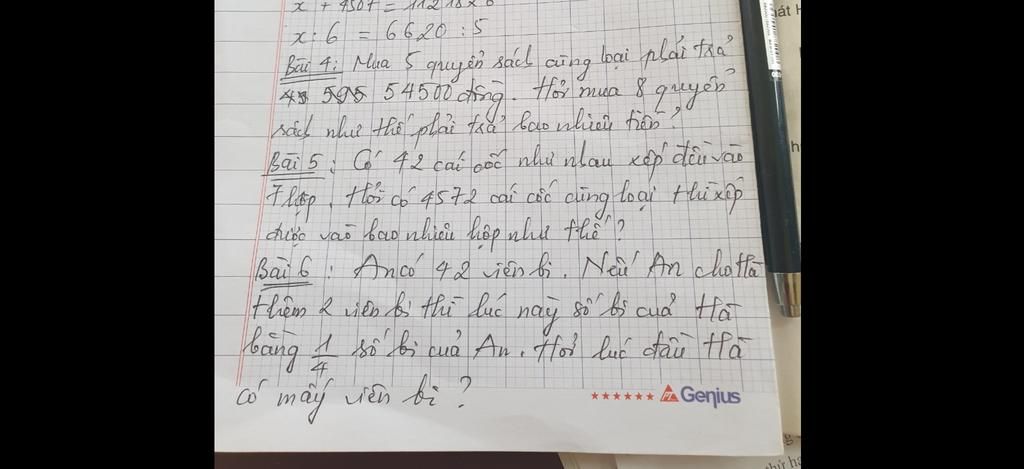 x + 4507 = 11218 x 6
x : 6 = 6620 : 5
Bài 4: Mua 5 quyển sách cùng loại phải trả
54500 đồng. Hỏi mua 8 quyển
sách như thế phải trả bao nhiêu tiền?
Bài 5: Có 42 cái cốc như nhau xếp đều vào
7 hộp. Hỏi có 4572 cái cốc cùng loại thì xếp
được vào bao nhiêu hộp như thế?
Bài 6: An có 42 viên bi. Nếu An cho Hà
thêm 2 viên bi thì lúc này số bi của Hà
bằng 1/4 số bi của An. Hỏi lúc đầu Hà
có mấy viên bi?
Genius